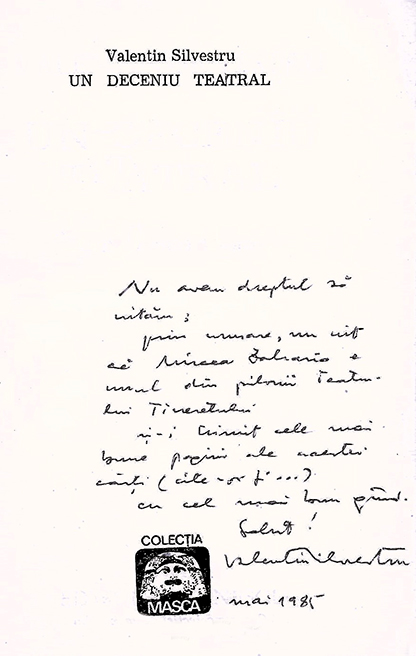 Valentin Silvestru
UN DECENIU TEATRAL
Nu avem dreptul să
uităm;
prin urmare, nu uit
că Mircea Zaharia e
unul din pilonii Teatru-
lui Tineretului
și-i trimit cele mai
bune pagini ale acestei
cărți (cîte-or fi...)
cu cel mai bun gînd.
Salut!
Valentin Silvestru
COLECȚIA
MASCA
mai 1985